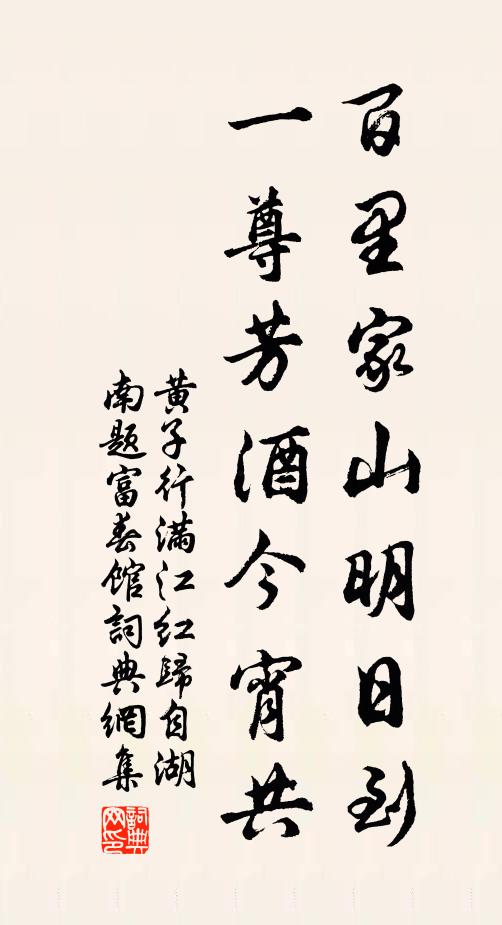 百里家山明日到
一尊芳酒今宵共
黄子行满江红歸自湖
南题富春館詞典網集
詞典网印